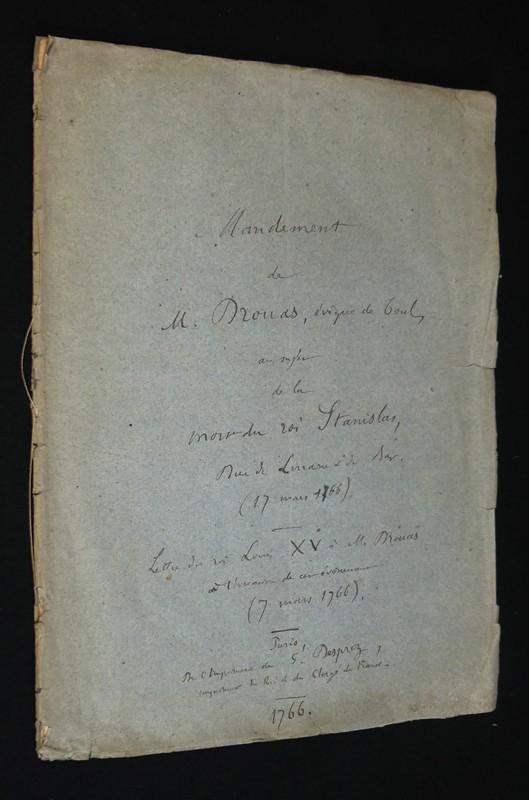 Mandement
de
M. Drouas, évêque de Toul,
au sujet
de la
mort du roi Stanislas,
Duc de Lorraine & de Bar.
(17 mars 1766).
Lettre du roi Louis XV à M. Drouas
à l'occasion de cet événement
(7 mars 1766).
Paris,
De l'Imprimerie de G. Desprez,
Imprimeur du Roi & du Clergé de France.
1766.